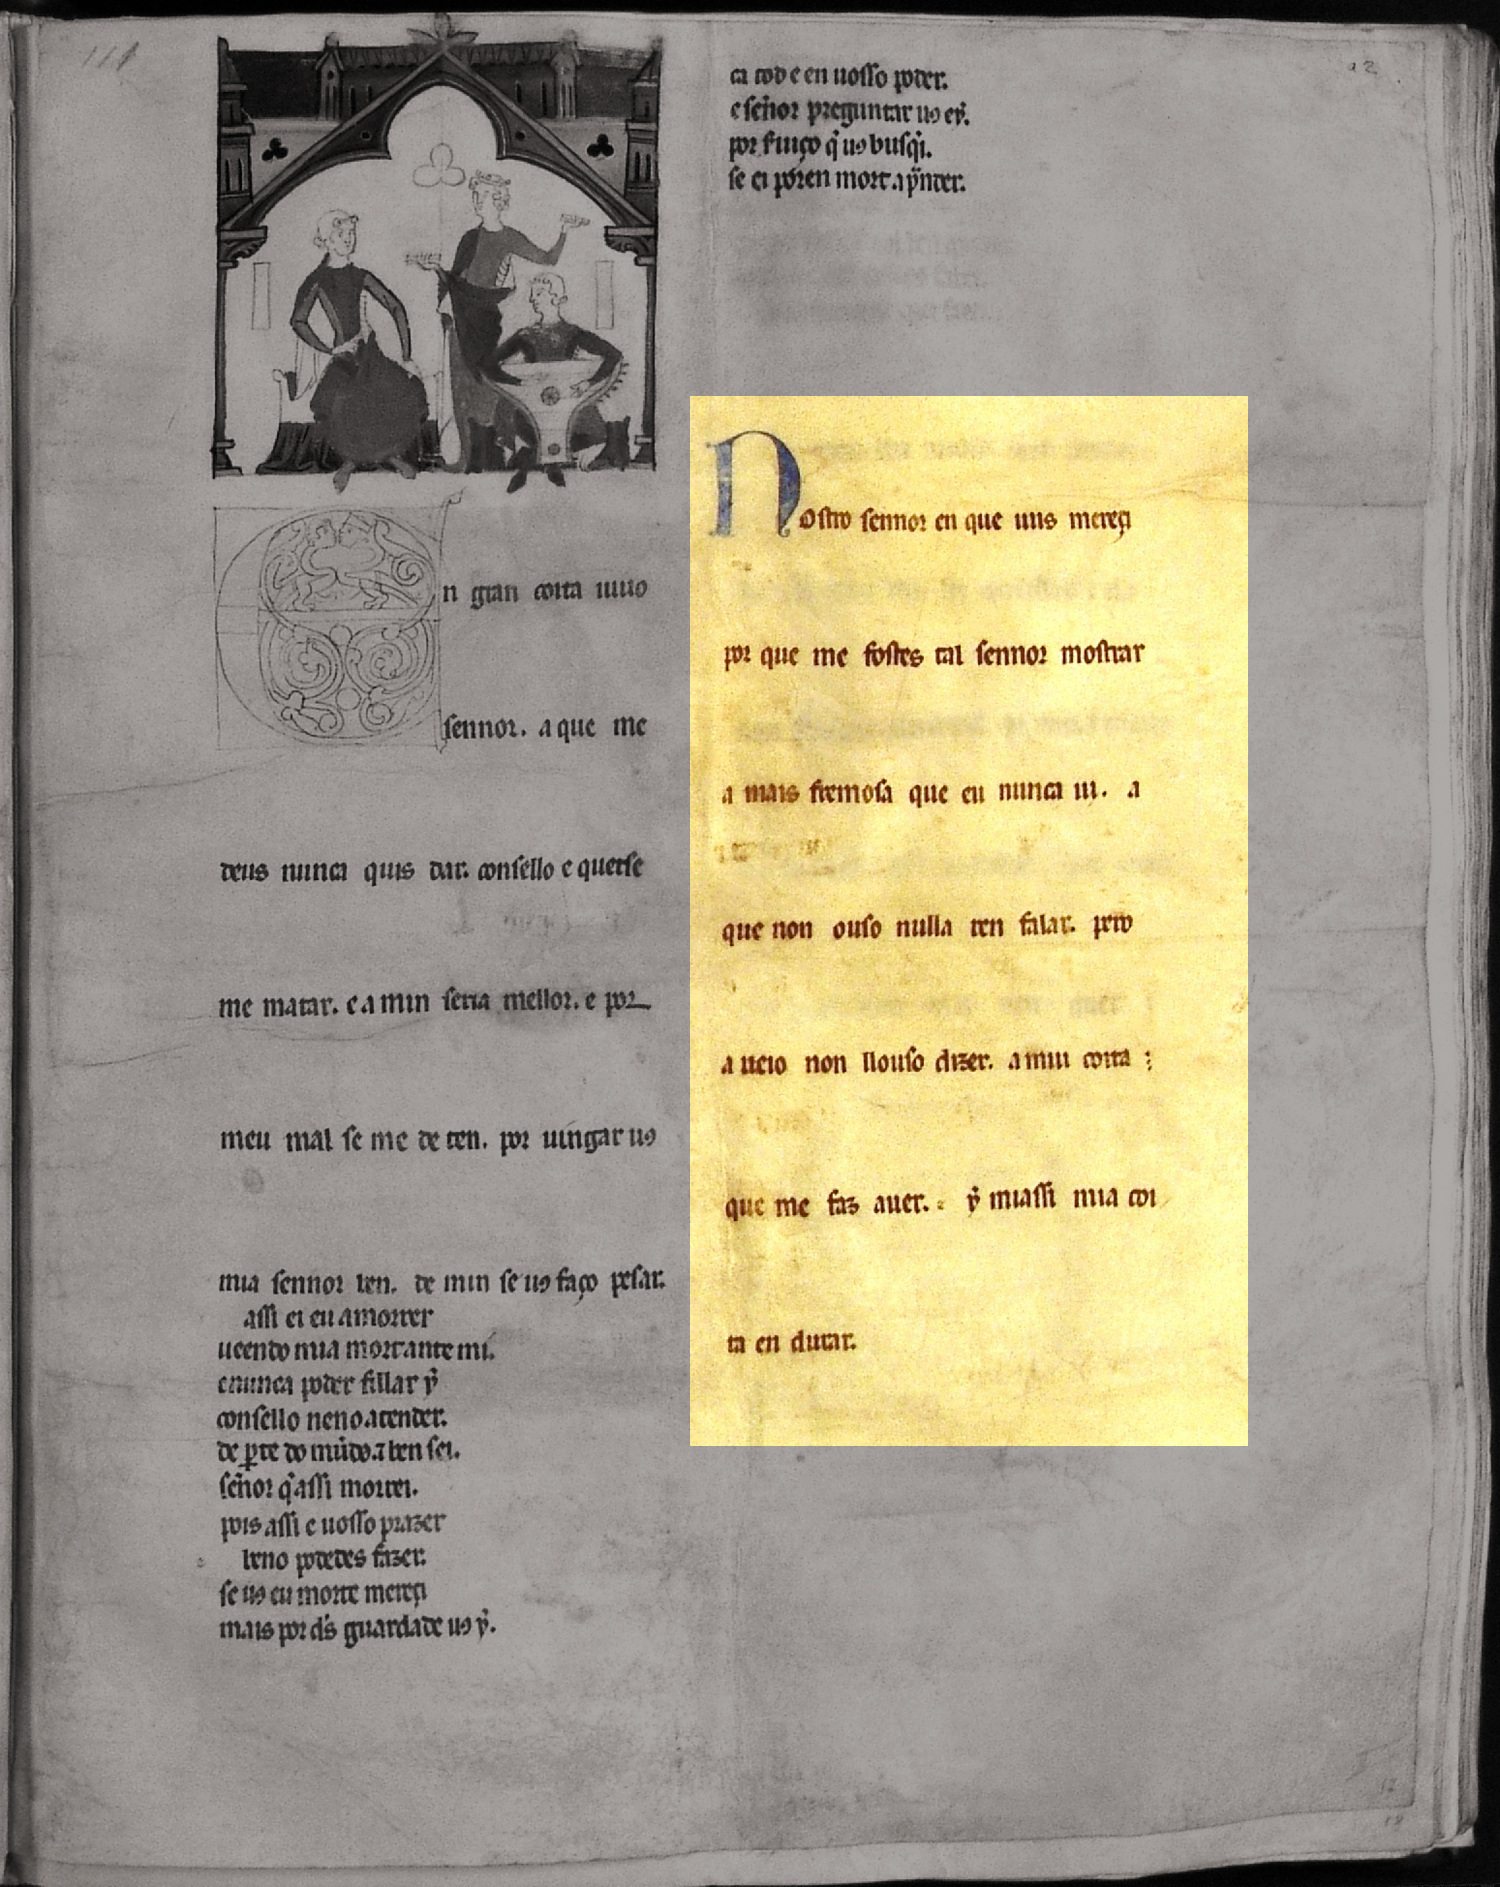 111
12
En gran coita uiuo
sennor. a que me
deus nunca quis dar. consello e querse
me matar. e a min seria mellor. e por
meu mal se me de ten. por uingar uꝯ
mia sennor ben. de min se uꝯ faço pesar.
assi ei eu a morrer
ueendo mia mort ante mi.
e nunca poder fillar ẏ
consello neno atender.
de ꝑte do mũdo. ⁊ ben sei.
sẽnor q̃ assi morrei.
pois assi e uosso prazer
beno podedes fazer.
se uꝯ eu morte mereçi
mais por d̃s guardade uꝯ ẏ.
ca tod e en uosso poder.
e sẽnor preguntar uꝯ eẏ.
por q̃ uꝯ busq̃i.
se ei poren mort a p̃nder.
Nostro sennor en que uus mereçi
por que me fostes tal sennor mostrar
a mais fremosa que eu nunca ui. a
que non ouso nulla ren falar. pero
a ueio non llouso dizer. a mui coita
que me faz auer. ẏ miassi mia coi
ta en durar.